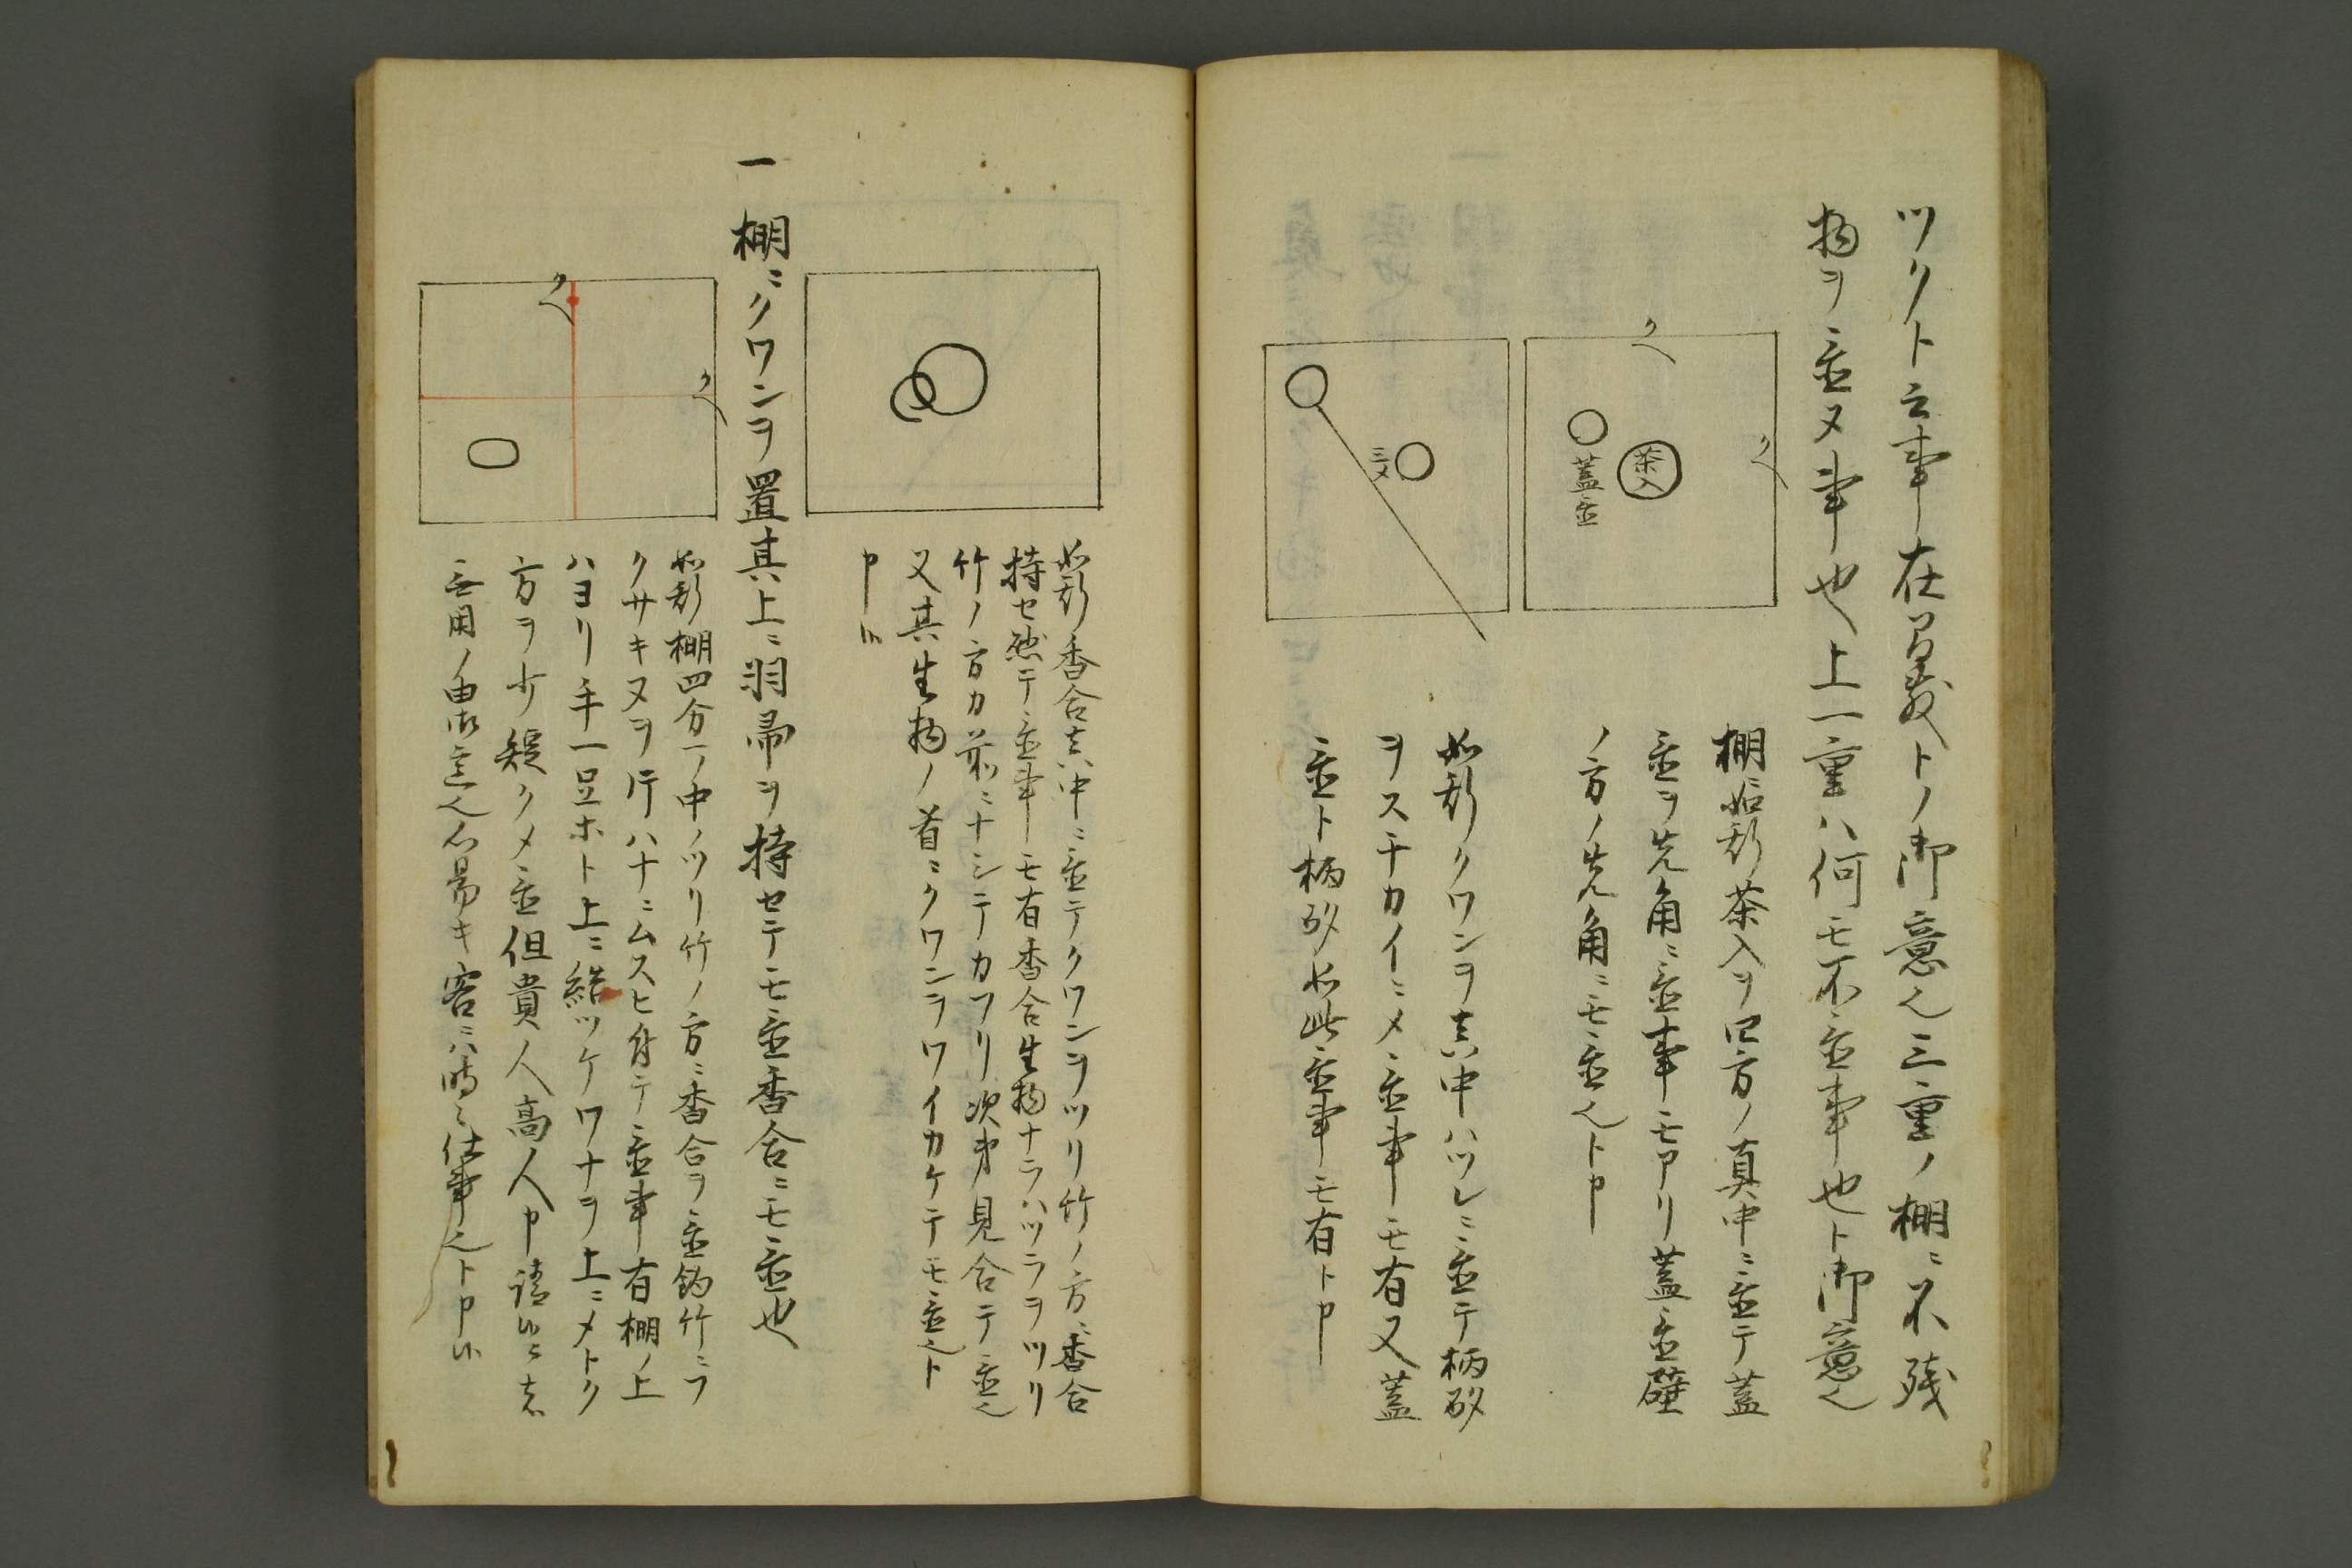 ツクト云事在之義トノ御意也三重ノ棚ニ不残
物ヲ置ヌ事也上一重ハ何モ不置事也ト御意也
ク
ク
茶入
蓋置
棚ニ如形茶入ヲ四方ノ真中ニ置テ蓋
置ヲ先角ニ置事モアリ蓋置壁
ノ方ノ先角ニモ置也ト申
三メ
如形クワンヲ真中ハツレニ置テ柄杓
ヲスチカイニメ置事モ有又蓋
置ト柄杓如此置事モ有ト申
如形香合真中ニ置テクワンヲツリ竹ノ方ニ香合
持セ懸テ置事モ有香合生物ナラハツラヲツリ
竹ノ方カ前ニナシテカフリ次第見合テ置也
又其生物ノ首ニクワンヲワイカケテモ置也ト
申候
一 棚ニクワンヲ置其上ニ羽帚ヲ持セテモ置香合ニモ置也
ク
ク
如形棚四分一ノ中ノツリ竹ノ方ニ香合ヲ置釣竹ニフ
クサキヌヲ片ハナニムスヒ付テ置事有棚ノ上
ハヨリ手一足ホト上ニ結ツケワナヲ上ニメトク
方ヲ少短クメ置但貴人高人申請候 
無用ノ由御意也心易キ客ニハ時々仕事也ト申候